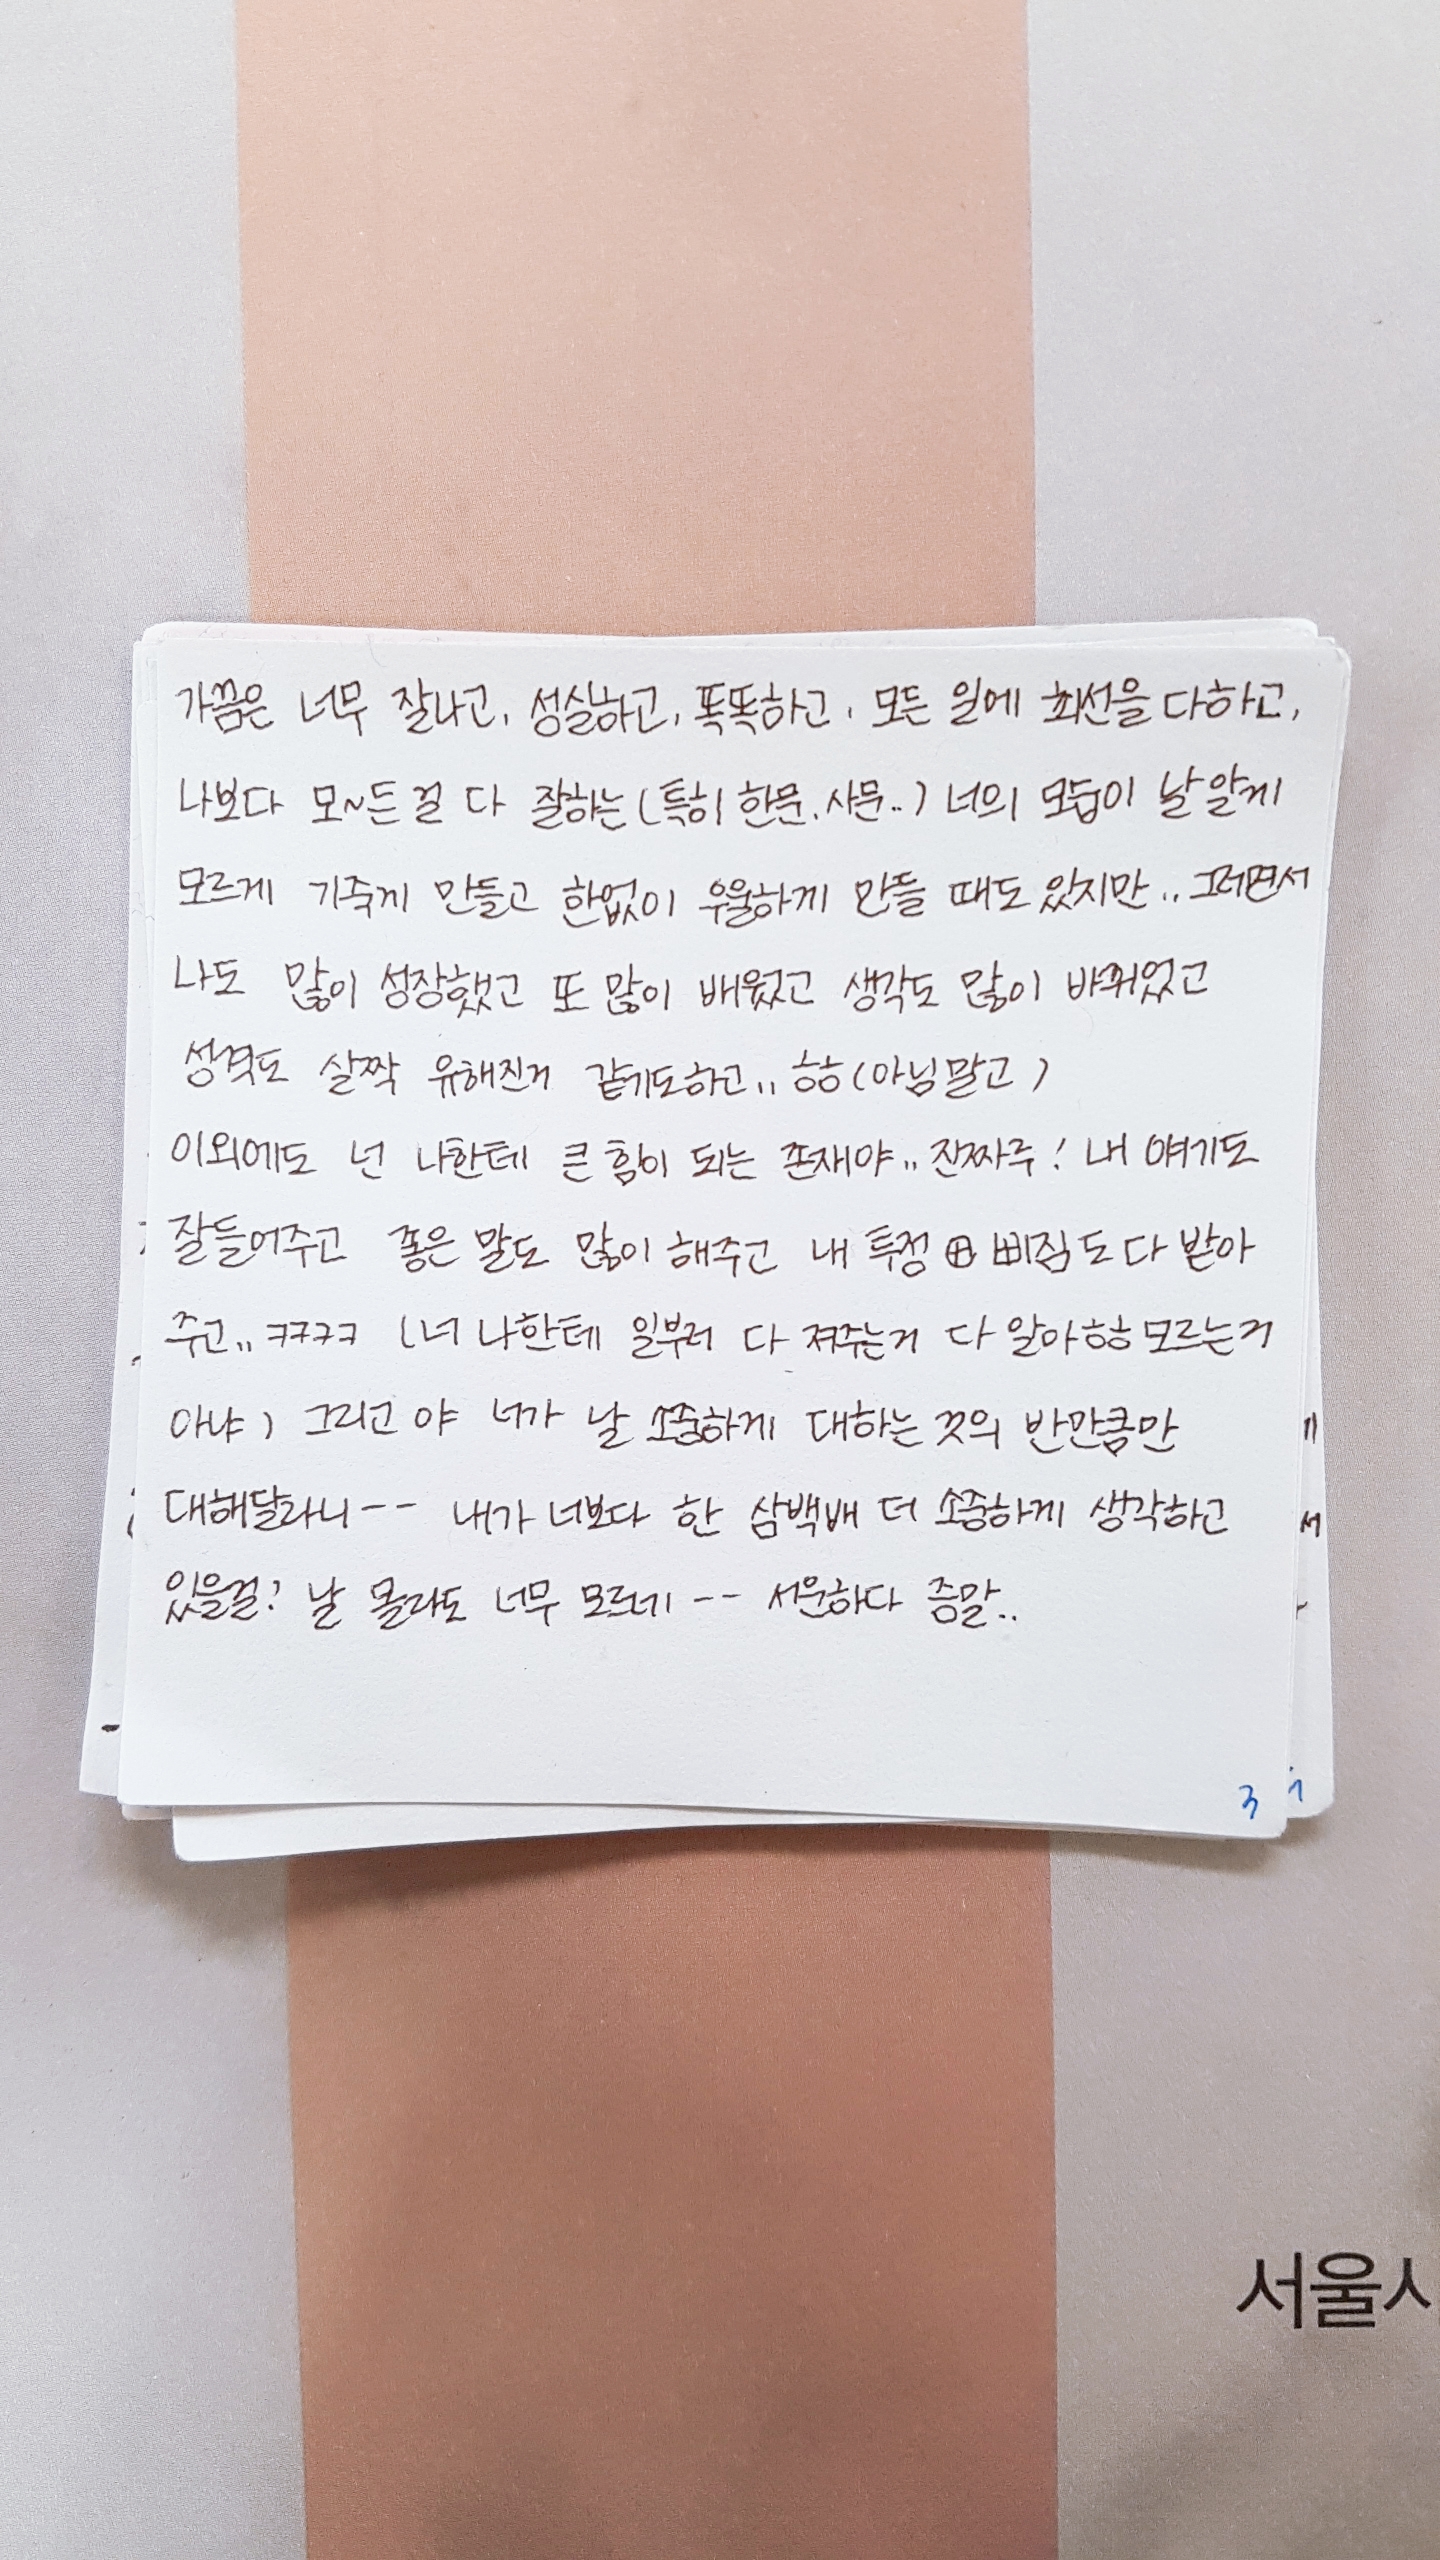 가끔은 너무 잘나고, 성실하고, 똑똑하고, 모든 일에 최선을 다하고,
나보다 모~든걸 다 잘하는(특히 한문,사문..) 너의 모습이 날 알게
모르게 기죽게 만들고 한없이 우울하게 만들 때도 있지만.. 그러면서
나도 많이 성장했고 또 많이 배웠고 생각도 많이 바뀌었고
성격도 살짝 유해진거 같기도하고.. ㅎㅎ(아님말고)
이외에도 넌 나한테 큰 힘이 되는 존재야.. 진짜루! 내 얘기도
잘들어주고 좋은 말도 많이 해주고 내 투정 ⊕ 삐짐도 다 받아
주고.. ㅋㅋㅋㅋ (너 나한테 일부러 다 져주는거 다 알아ㅎㅎ 모르는거
아냐) 그리고 야 너가 날 소중하게 대하는 것의 반만큼만
대해달라니-- 내가 너보다 한 삼백배 더 소중하게 생각하고
있을걸? 날 몰라도 너무 모르네-- 서운하다 증말..
3
서울시